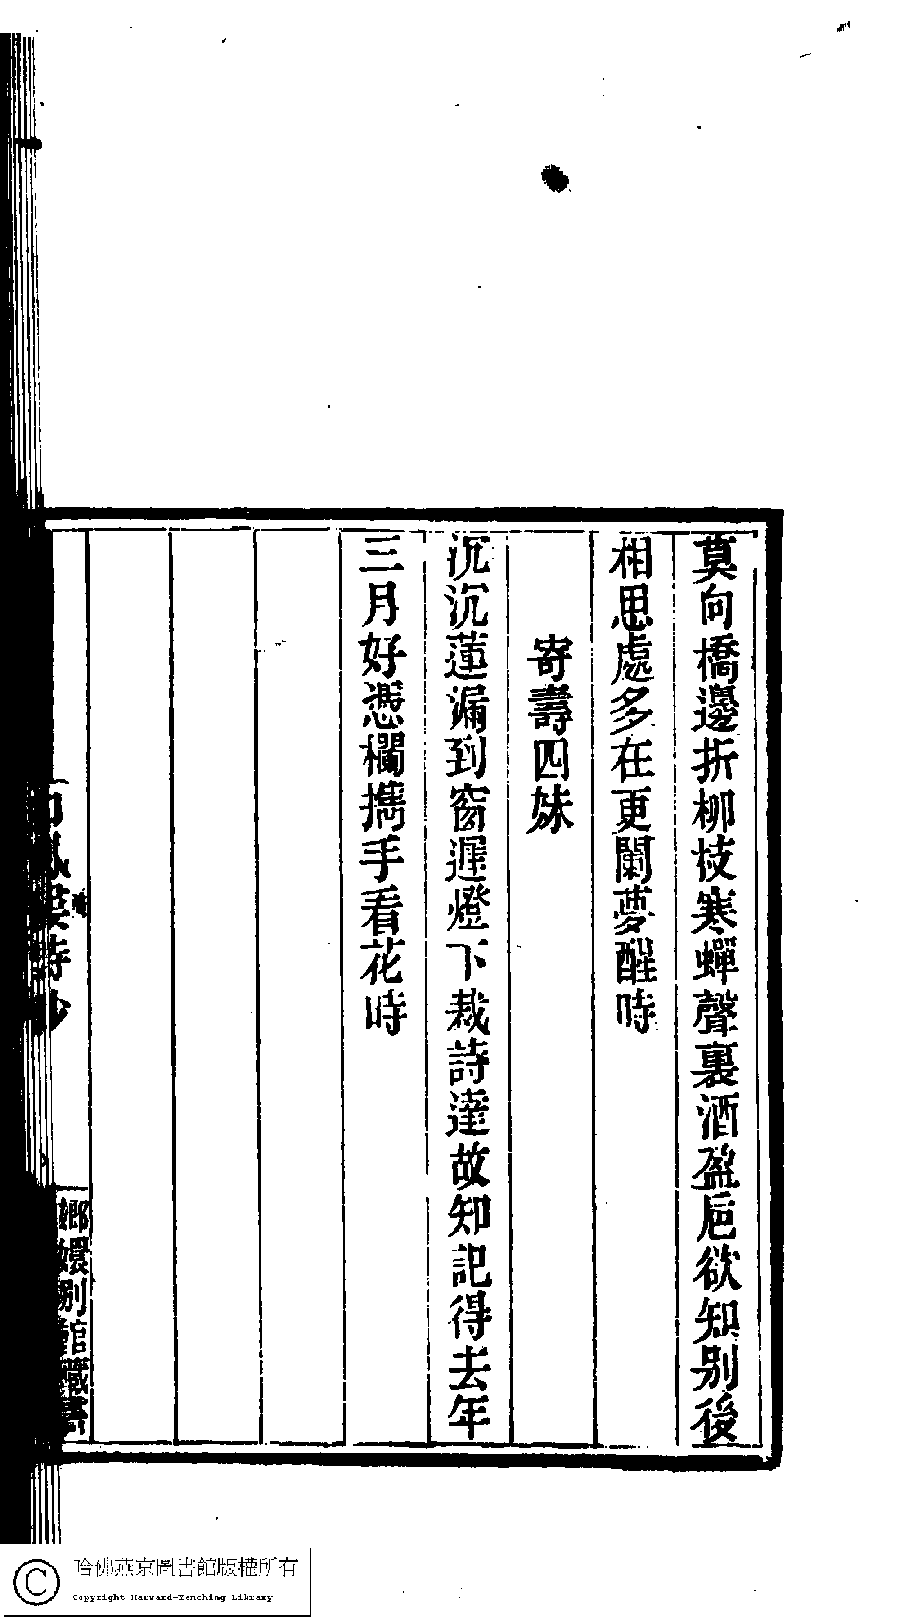 莫向橋邊折柳枝寒蟬聲裏酒盈巵欲知別後
相思處多在更闌夢醒時
寄壽四妹
沉沉蓮漏到窗遲燈下裁詩達故知記得去年
三月好憑欄攜手看花時
詩鈔
嫏嬛別館藏書
哈佛燕京圖書館版權所有
Copyright Harvard-Yenching Library